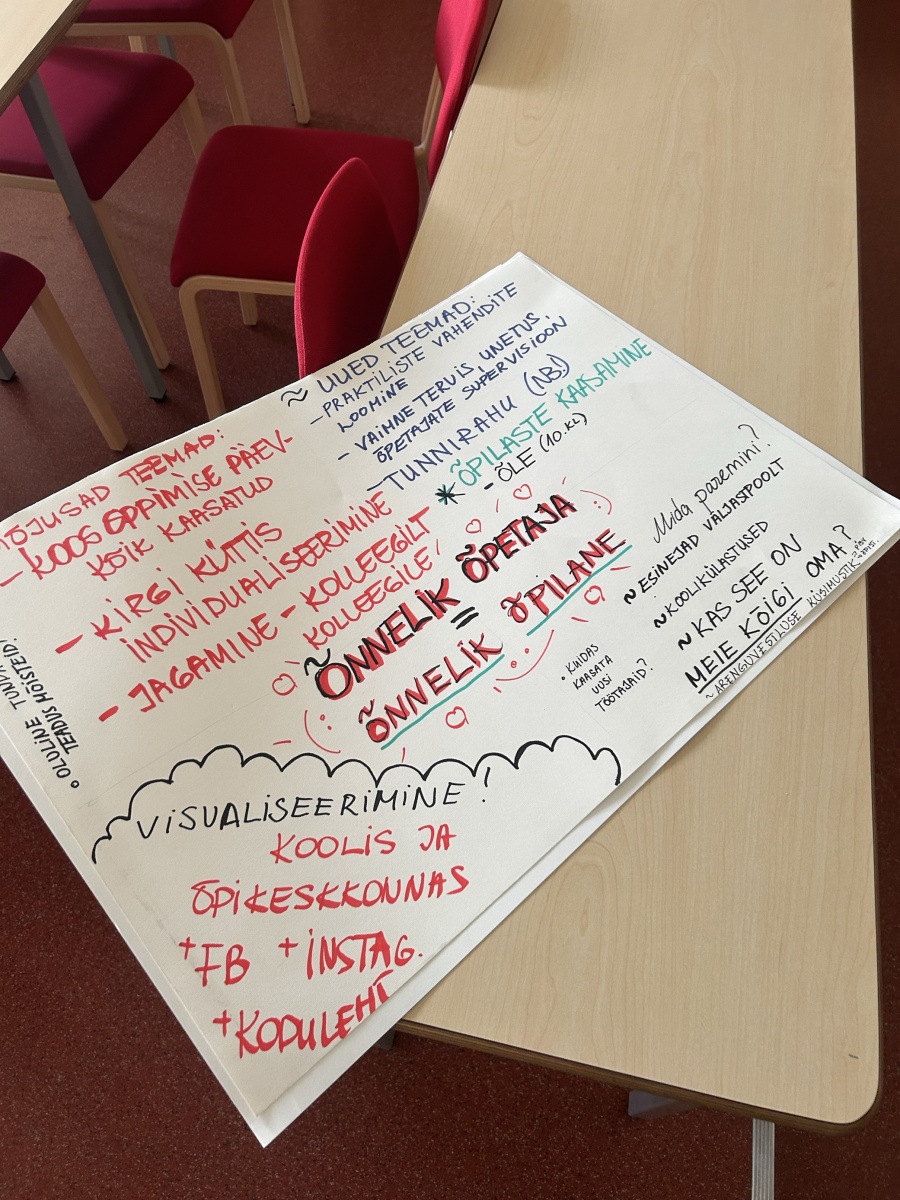 ~ UUED TEEMAD:
- PRAKTILISTE VAHENDITE
LOOMINE
- VAIMNE TERVIS, UNETUS,
ÕPETAJATE SUPERVISIOON
- TUNNIRAHU (NB!)
* ÕPILASTE KAASAMINE
- ÕLE (10.KL)
MÕJUSAD TEEMAD:
- KOOS ÕPPIMISE PÄEV-
KÕIK KAASATUD
- KIRGI KÜTTIS
INDIVIDUALISEERIMINE
- JAGAMINE - KOLLEEGILT
KOLLEEGILE
ÕNNELIK ÕPETAJA
=
ÕNNELIK ÕPILANE
Mida paremini?
~ ESINEJAD VÄLJASTPOOLT
~ KOOLIKÜLASTUSED
~ KAS SEE ON
MEIE KÕIGI OMA?
~ ARENGUVESTLUSE KÜSIMUSTIK
• KUIDAS
KAASATA
UUSI
TÖÖTAJAID?
• OLULINE
TEADUS MÕISTEID!
VISUALISEERIMINE!
KOOLIS JA
ÕPIKESKKONNAS
+FB +INSTAG.
+KODULEHT